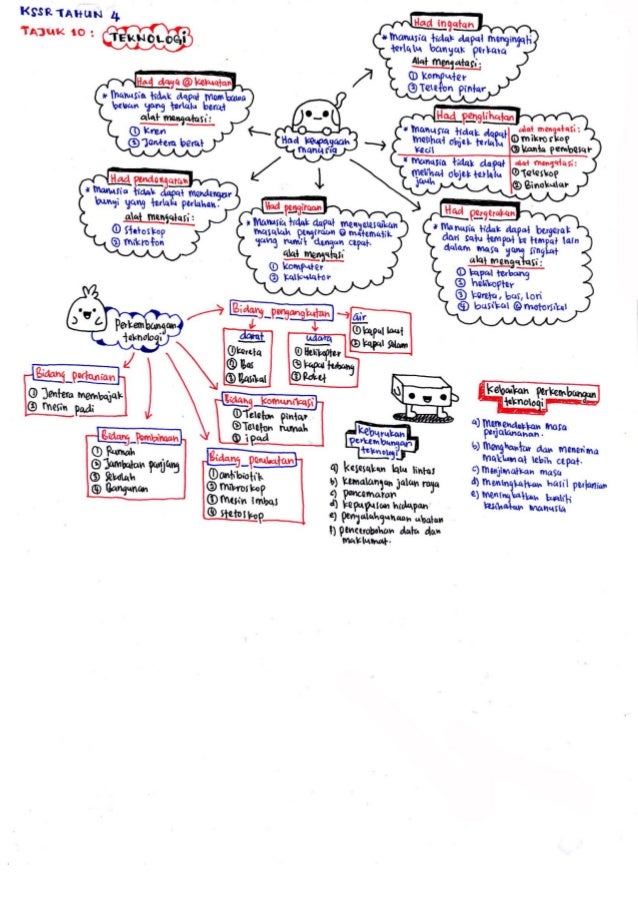 KSSR TAHUN 4
TAJUK 10: TEKNOLOGI
Had ingatan
* Manusia tidak dapat mengingati
terlalu banyak perkara
Alat mengatasi:
① Komputer
② Telefon pintar
Had daya @ kekuatan
* Manusia tidak dapat membawa
beban yang terlalu berat
alat mengatasi:
① Kren
② Jentera berat
Had keupayaan
manusia
Had penglihatan
* Manusia tidak dapat
melihat objek terlalu
kecil
alat mengatasi:
① mikroskop
② kanta pembesar
* Manusia tidak dapat
melihat objek terlalu
jauh
alat mengatasi:
① Teleskop
② Binokular
Had pendengaran
* Manusia tidak dapat mendengar
bunyi yang terlalu perlahan.
alat mengatasi:
① Stetoskop
② mikrofon
Had pengiraan
* Manusia tidak dapat menyelesaikan
masalah pengiraan @ matematik
yang rumit dengan cepat.
alat mengatasi
① Komputer
② Kalkulator
Had pergerakan
* Manusia tidak dapat bergerak
dari satu tempat ke tempat lain
dalam masa yang singkat
alat mengatasi:
① kapal terbang
② helikopter
③ kereta, bas, lori
④ basikal @ motorsikal
Perkembangan
teknologi
Bidang pengangkutan
darat
① kereta
② Bas
③ Basikal
udara
① Helikopter
② kapal terbang
③ Roket
air
① kapal laut
② kapal selam
Bidang pertanian
① Jentera membajak
② mesin padi
Bidang Pembinaan
① Rumah
② Jambatan panjang
③ Sekolah
④ Bangunan
Bidang komunikasi
① Telefon pintar
② Telefon rumah
③ ipad
Bidang perubatan
① antibiotik
② mikroskop
③ mesin imbas
④ stetoskop
Keburukan
perkembangan
teknologi
a) kesesakan lalu lintas
b) kemalangan jalan raya
c) pencemaran
d) kepupusan hidupan
e) penyalahgunaan ubatan
f) pencerobohan data dan
maklumat.
Kebaikan perkembangan
teknologi
a) Memendekkan masa
perjalananan.
b) Menghantar dan menerima
maklumat lebih cepat.
c) Menjimatkan masa
d) Meningkatkan hasil pertanian
e) meningkatkan kualiti
kesihatan manusia